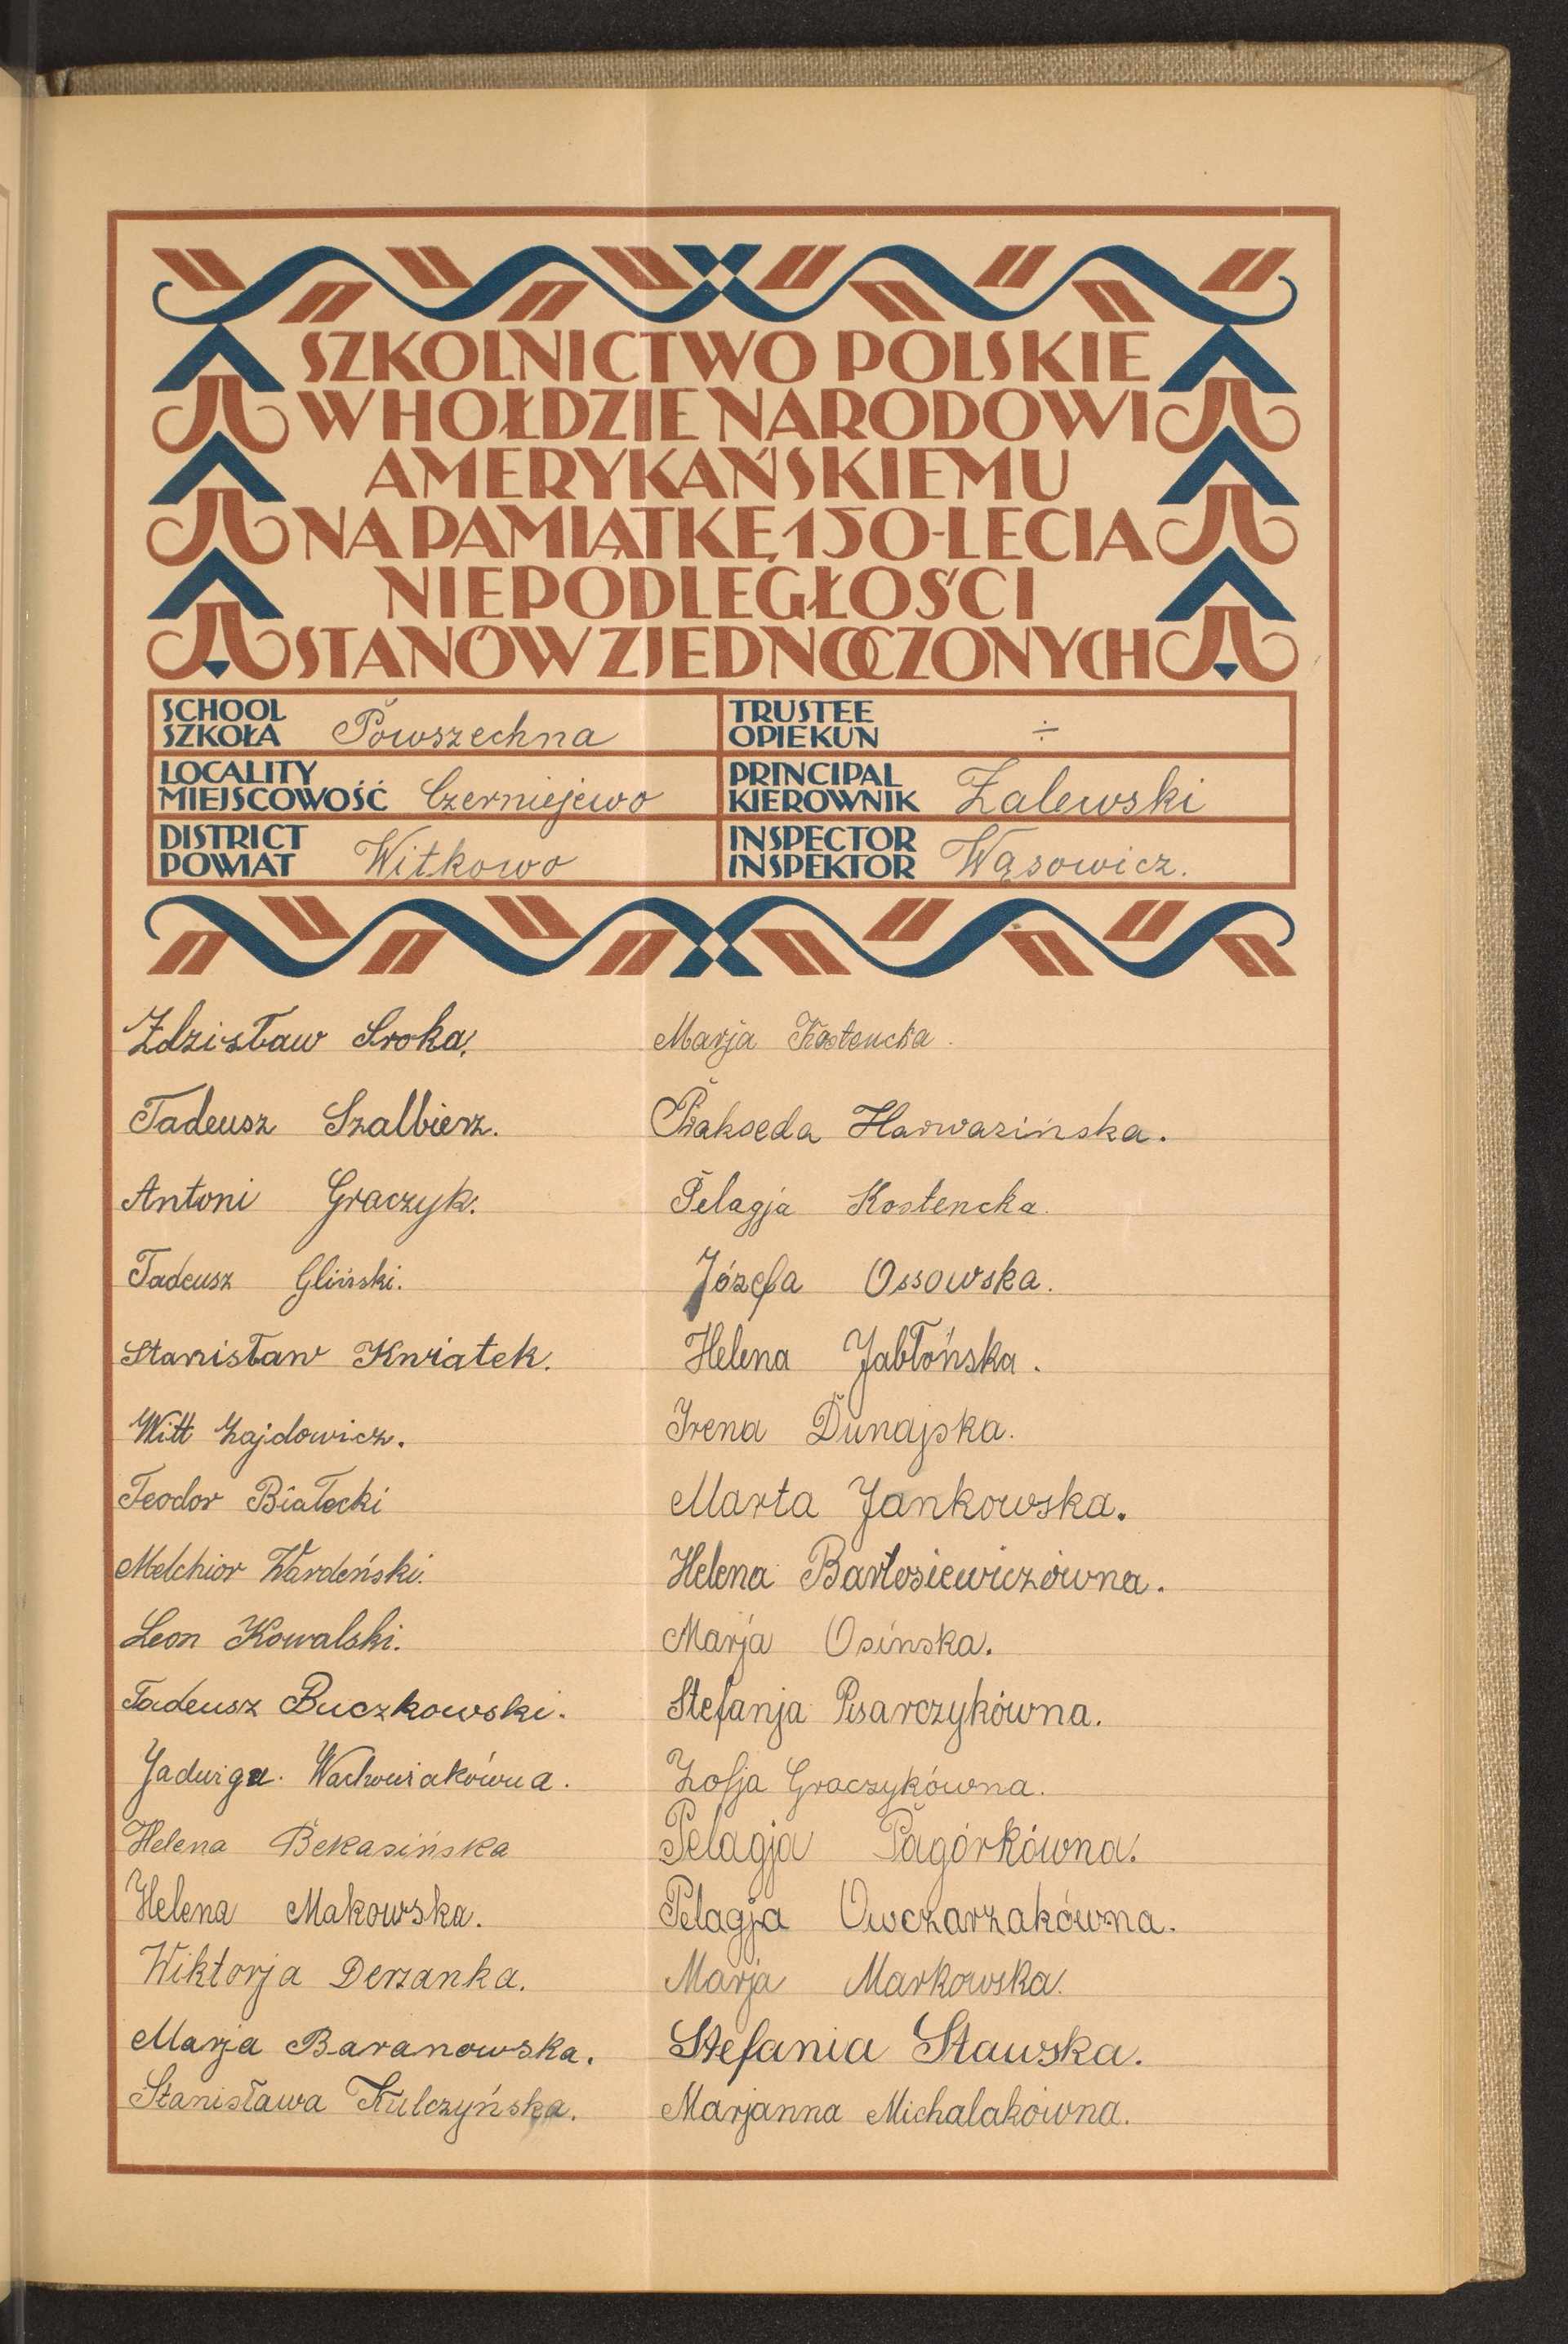 SZKOLNICTWO POLSKIE
W HOŁDZIE NARODOWI
AMERYKAŃSKIEMU
NA PAMIĄTKĘ 150-LECIA
NIEPODLEGŁOŚCI
STANÓW ZJEDNOCZONYCH
SCHOOL
SZKOŁA Powszechna
TRUSTEE
OPIEKUN ÷
LOCALITY
MIEJSCOWOŚĆ Czerniejewo
PRINCIPAL
KIEROWNIK Zalewski
DISTRICT
POWIAT Witkowo
INSPECTOR
INSPEKTOR Wąsowicz.
Zdzisław Sroka.
Tadeusz Szalbierz.
Antoni Graczyk.
Tadeusz Gliński.
Stanisław Kwiatek.
Witt Zajdowicz.
Teodor Białecki
Melchior Wardeński.
Leon Kowalski.
Tadeusz Buczkowski.
Jadwiga. Wachowiakówna.
Helena Bekasińska
Helena Makowska.
Wiktorja Derzanka.
Marja Baranowska.
Stanisława Kulczyńska.
Marja Kostencka.
Prakseda Harwazińska.
Pelagja Kostencka.
Józefa Ossowska.
Helena Jabłońska.
Irena Dunajska.
Marta Jankowska.
Helena Bartosiewiczówna.
Marja Osińska.
Stefanja Pisarczykówna.
Zofja Graczykówna.
Pelagja Pagórkówna.
Pelagja Owczarzakówna.
Marja Markowska.
Stefania Stawska.
Marjanna Michalakówna.